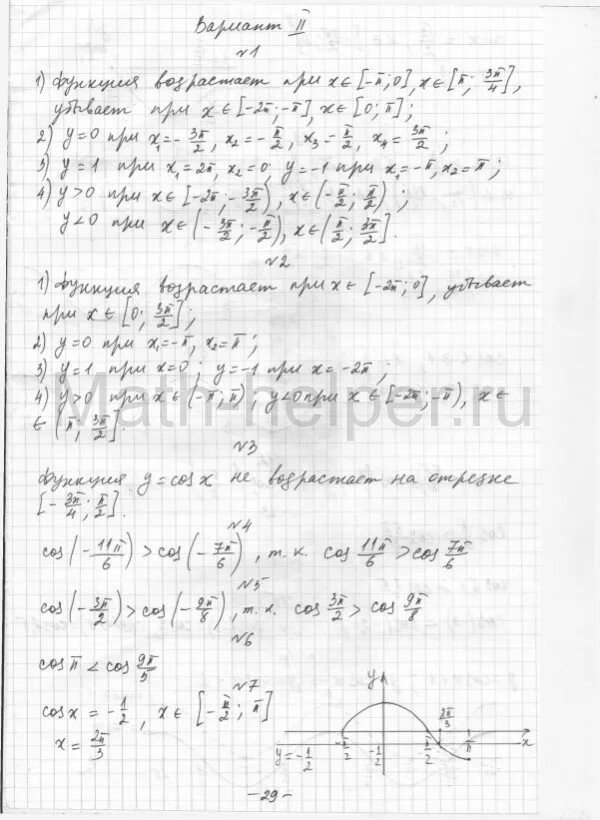 Вариант II
№1
1) Функция возрастает при x∈[-π;0], x∈[π; 3π/4],
убывает при x∈[-2π;-π], x∈[0;π];
2) y=0 при x₁=-3π/2, x₂=-π/2, x₃=π/2, x₄=3π/2;
3) y=1 при x₁=2π, x₂=0; y=-1 при x₁=-π, x₂=π;
4) y>0 при x∈[-2π;-3π/2), x∈(-π/2; π/2);
y<0 при x∈(-3π/2;-π/2), x∈(π/2; 3π/2].
№2
1) Функция возрастает при x∈[-2π;0], убывает
при x∈[0; 3π/2];
2) y=0 при x₁=-π, x₂=π;
3) y=1 при x=0; y=-1 при x=-2π;
4) y>0 при x∈(-π;π); y<0 при x∈[-2π;-π), x∈
∈(π; 3π/2].
Math-helper.ru
№3
Функция y=cosx не возрастает на отрезке
[-3π/4; π/2].
№4
cos(-11π/6)>cos(-7π/6), т.к. cos 11π/6>cos 7π/6
№5
cos(-3π/2)>cos(-9π/8), т.к. cos 3π/2>cos 9π/8
№6
cosπ<cos 9π/5
№7
cosx=-1/2, x∈[-π/2; π]
x=2π/3
y
2π/3
y=-1/2
-π/2
-1/2
π/2
π
x
-29-